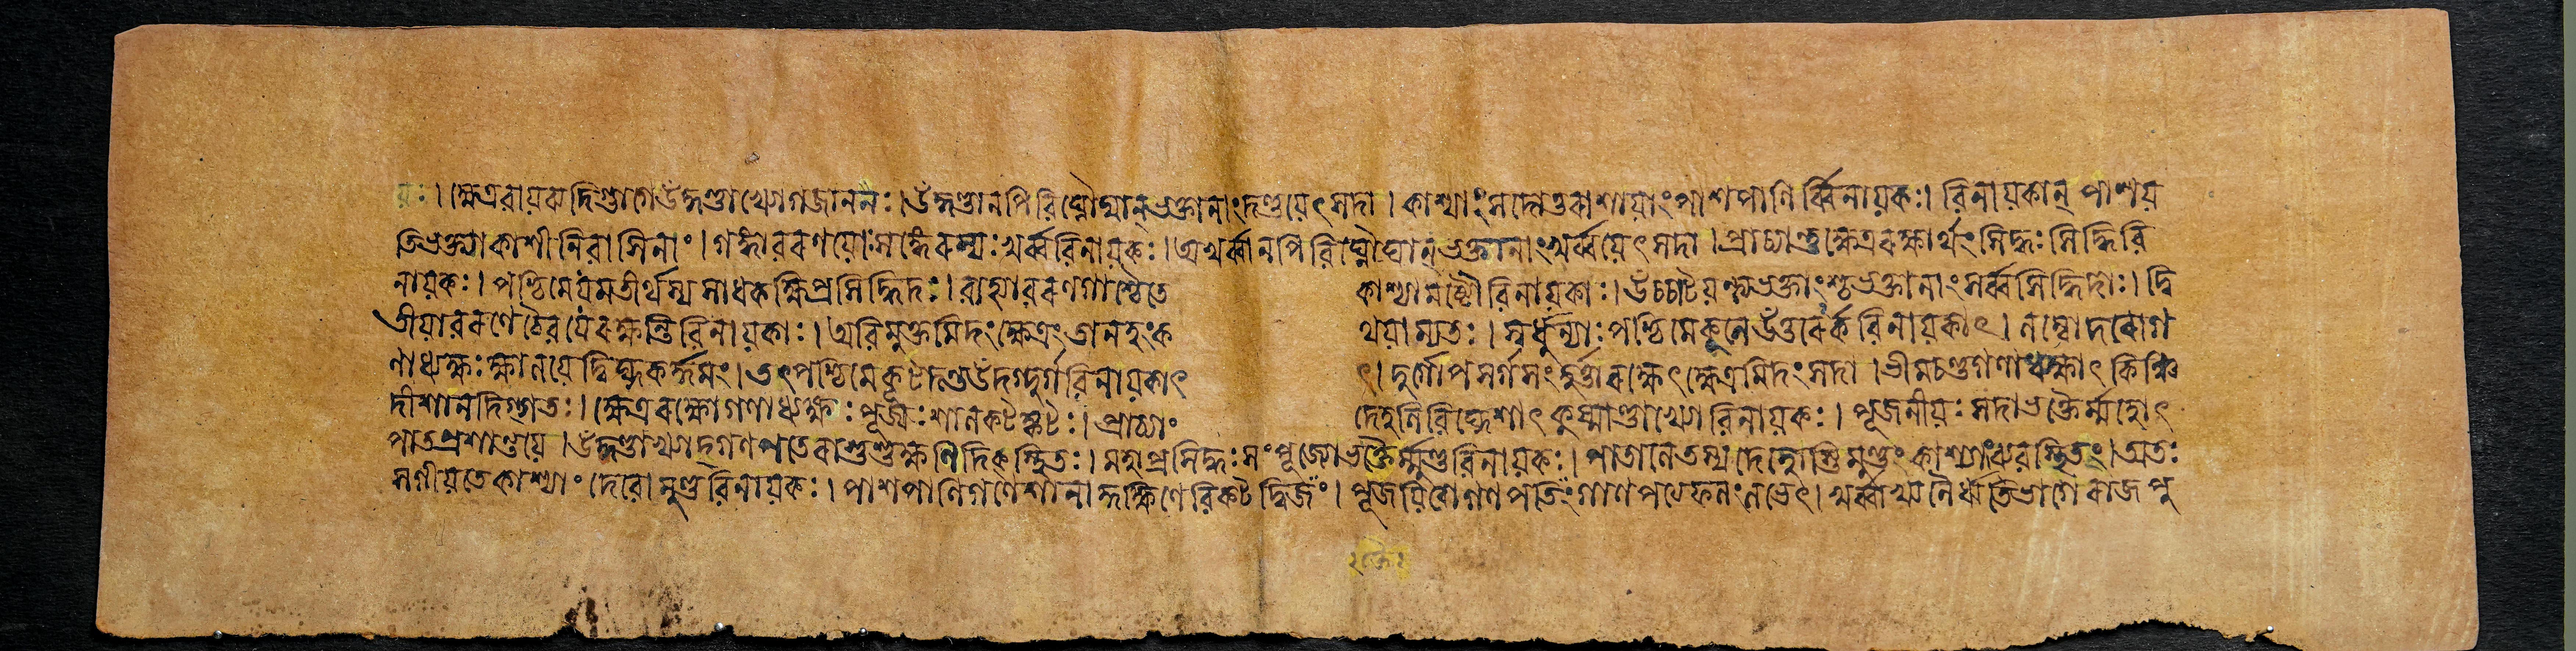 যঃ। ক্ষেত্রবায়ব্যদিগ্ভাগে উদ্দণ্ডাখ্যোগজাননঃ। উদ্দণ্ডানপি বিঘ্নৌঘান্ ভক্তানাং দণ্ডয়েৎ সদা। কাশ্যাঃ সদোত্তরাশায়াং পাশপাণির্ব্বিনায়কঃ। বিনায়কান্ পাশয়
তি ভক্ত্যা কাশীনিবাসিনাং। গঙ্গাবরণয়োঃ সঙ্গে রম্যঃ খর্ব্ববিনায়কঃ। অখর্ব্বানপি বিঘ্নৌঘান্ ভক্তানাং খর্ব্বয়েৎ সদা। প্রাচ্যান্তু ক্ষেত্ররক্ষার্থং সিদ্ধঃ সিদ্ধিবি
নায়কঃ। পশ্চিমে যমতীর্থস্য সাধকক্ষিপ্রসিদ্ধিদঃ। বাহ্যাবরণগাশ্চৈতে কাশ্যামষ্টৌ বিনায়কাঃ। উচ্চাটয়ন্ত্যভক্তাংশ্চ ভক্তানাং সর্ব্বসিদ্ধিদাঃ। দ্বি
তীয়াবরণে চৈব যে রক্ষন্তি বিনায়কাঃ। অবিমুক্তমিদং ক্ষেত্রং তানহং ক থয়াম্যতঃ। স্বর্ধুন্যাঃ পশ্চিমে কূলে উত্তরেঽর্কবিনায়কাৎ। লম্বোদরোগ
ণাধ্যক্ষঃ ক্ষালয়েদ্বিঘ্নকর্দ্দমং। তৎপশ্চিমে কূটদণ্ড উদগ্দুর্গবিনায়কাৎ ৎ। দুর্গোপসর্গসংহর্ত্তা রক্ষেৎ ক্ষেত্রমিদং সদা। ভীমচণ্ডগণাধ্যক্ষাৎ কিঞ্চি
দীশানদিগ্গতঃ। ক্ষেত্ররক্ষোগণাধ্যক্ষঃ পূজ্যঃ শালকটঙ্কটঃ। প্রাচ্যাং দেহলিবিঘ্নেশাৎ কুষ্মাণ্ডাখ্যো বিনায়কঃ। পূজনীয়ঃ সদা ভক্তৈর্ম্মহোৎ
পাতপ্রশান্তয়ে। উদ্দণ্ডাখ্যাদ্গণপতেরাশুশুক্ষণিদিক্স্থিতঃ। মহাপ্রসিদ্ধঃ সংপূজ্যোভক্তৈর্ম্মুণ্ডবিনায়কঃ। পাতালে তস্য দেহোস্তি মুণ্ডং কাশ্যাং ব্যবস্থিতং। অতঃ
সগীয়তে কাশ্যাং দেবো মুণ্ডবিনায়কঃ। পাশপাণিগণেশানাদ্দক্ষিণে বিকটদ্বিজং। পূজয়িত্বা গণপতিং গাণপত্যেফলং লভেৎ। খর্ব্বাখ্যানৈর্ঋতিভাগে রাজপু